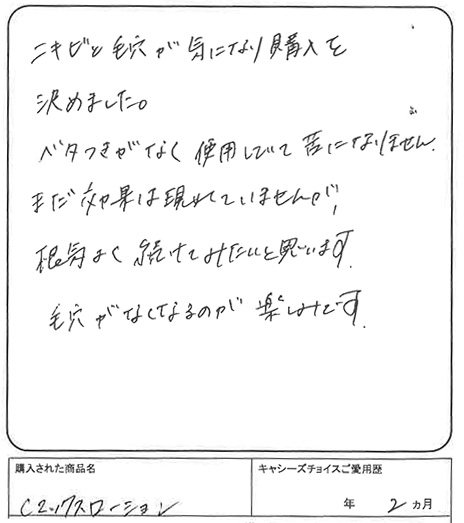 ニキビと毛穴が気になり購入を
決めました。
ベタつきがなく使用していて苦になりません。
まだ効果は現れていませんが、
根気よく続けてみたいと思います。
毛穴がなくなるのが楽しみです。
購入された商品名
キャシーズチョイスご愛用歴
Cエックスローション
年 2 ヵ月